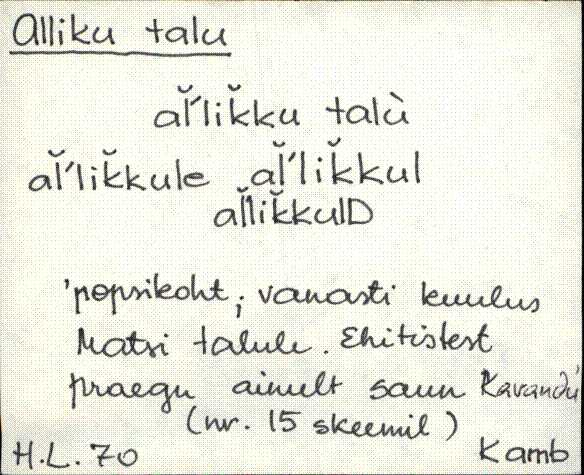 Alliku talu
al̆'lik̆ku talù
al̆'lik̆kule al̆'lik̆kul
al̆lik̆kulD
'popsikoht; vanasti kuulus
Matsi talule. Ehitistest
praegu ainult saun Kavandú
(nr. 15 skeemil)
H.L. 70 Kamb